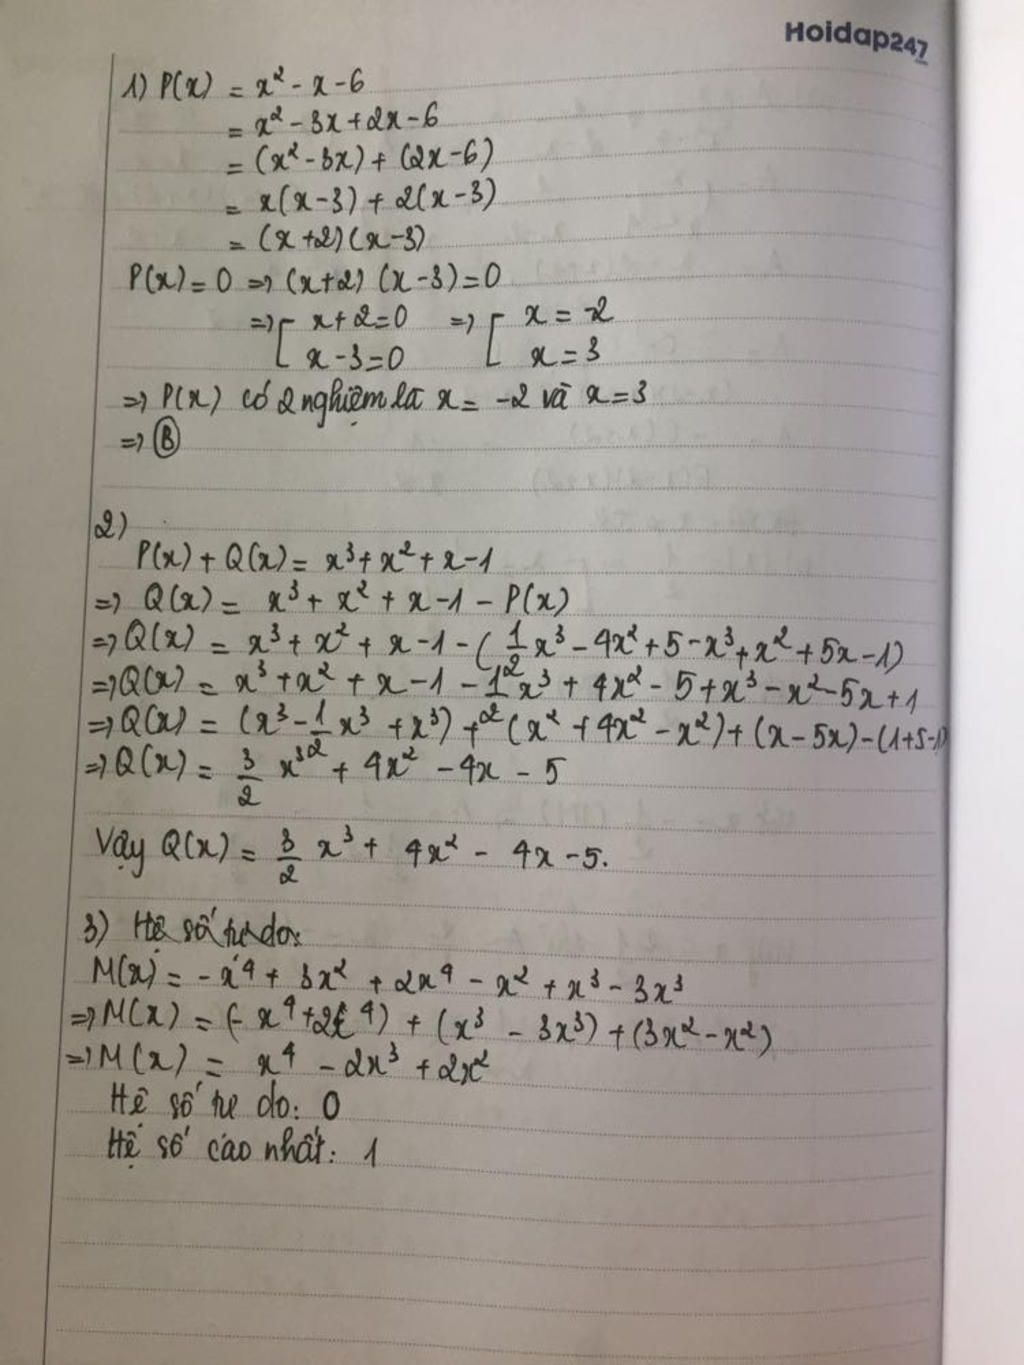 Hoidap247
1) P(x) = x² - x - 6
= x² - 3x + 2x - 6
= (x² - 3x) + (2x - 6)
= x(x - 3) + 2(x - 3)
= (x + 2)(x - 3)
P(x) = 0 => (x + 2)(x - 3) = 0
=> [ x + 2 = 0 => [ x = -2
x - 3 = 0 x = 3
=> P(x) có 2 nghiệm là x = -2 và x = 3
=> Ⓑ
2)
P(x) + Q(x) = x³ + x² + x - 1
=> Q(x) = x³ + x² + x - 1 - P(x)
=> Q(x) = x³ + x² + x - 1 - (1/2 x³ - 4x² + 5 - x³ + x² + 5x - 1)
=> Q(x) = x³ + x² + x - 1 - 1/2 x³ + 4x² - 5 + x³ - x² - 5x + 1
=> Q(x) = (x³ - 1/2 x³ + x³) + (x² + 4x² - x²) + (x - 5x) - (1 + 5 - 1)
=> Q(x) = 3/2 x³ + 4x² - 4x - 5
Vậy Q(x) = 3/2 x³ + 4x² - 4x - 5.
3) Hệ số tự do:
M(x) = -x⁴ + 3x² + 2x⁴ - x² + x³ - 3x³
=> M(x) = (-x⁴ + 2x⁴) + (x³ - 3x³) + (3x² - x²)
=> M(x) = x⁴ - 2x³ + 2x²
Hệ số tự do: 0
Hệ số cao nhất: 1